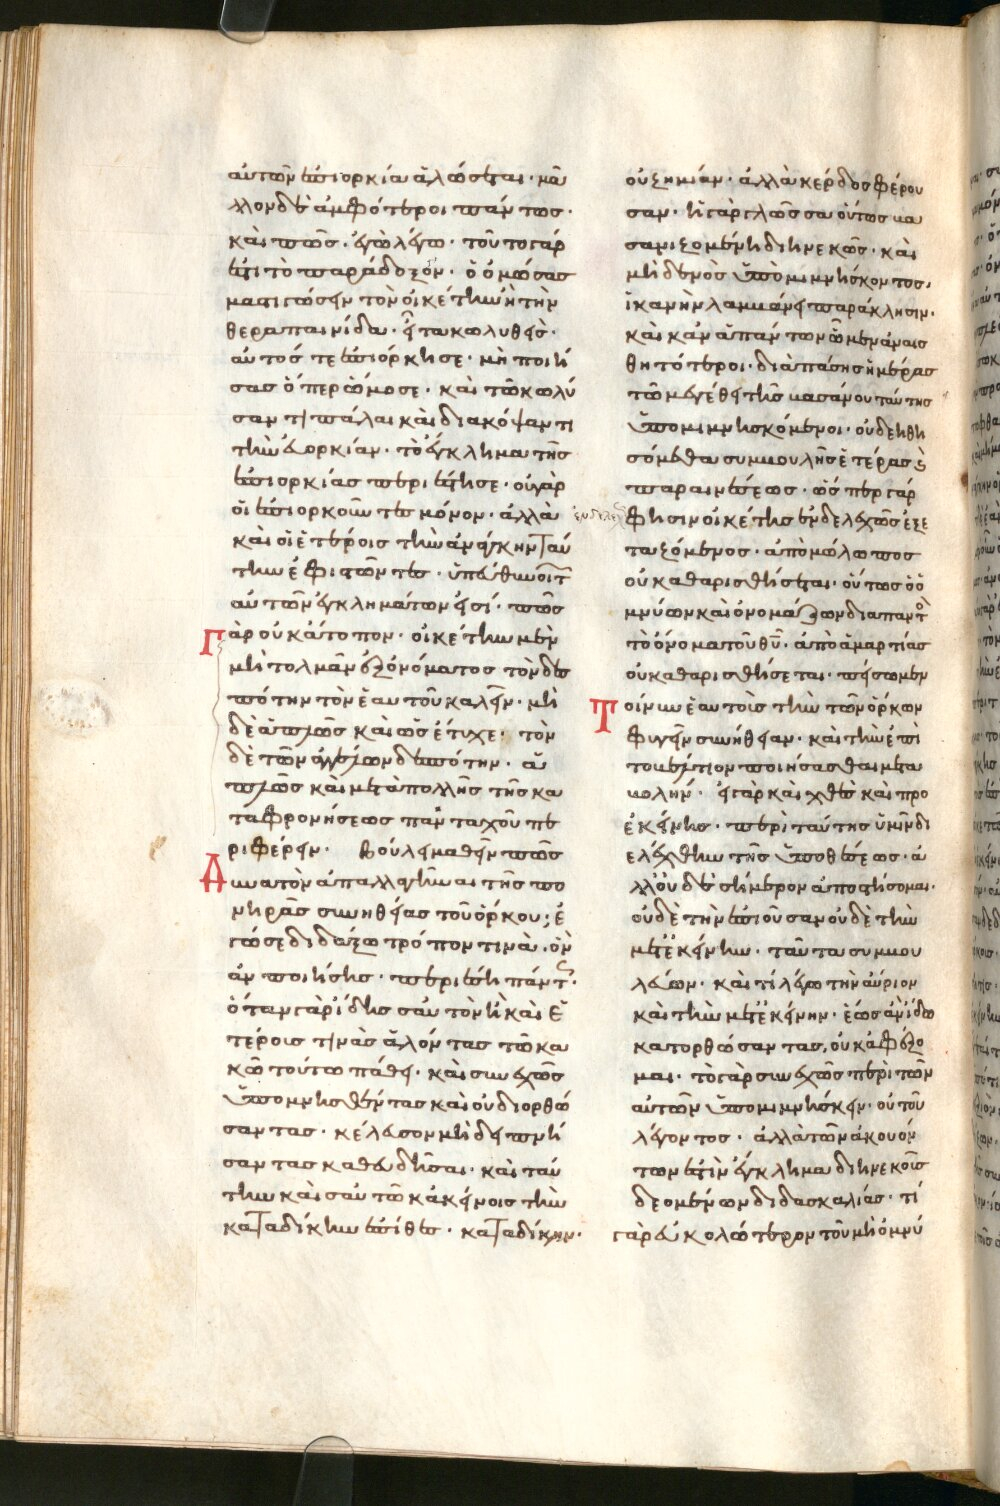 αὐτῶν ἐπιορκία ἁλώσεται· μᾶ
λλον δὲ ἀμφότεροι πάντως·
καὶ πῶς· ἐγὼ λέγω· τοῦτο γάρ
ἐστι τὸ παράδοξον· ὁ ὀμώσας
μαστιγώσειν τὸν οἰκέτην ἢ τὴν
θεραπαινίδα· εἶτα κωλυθεὶς·
αὐτός τε ἐπιόρκησε· μὴ ποιή
σας ὅπερ ὤμοσε· καὶ τῶ κωλύ
σαντι πάλαι καὶ διακόψαντι
τὴν εὐορκίαν· τὸ ἔγκλημα τῆς
ἐπιορκίας περιέστησε· οὐ γὰρ
οἱ ἐπιορκοῦντες μόνον· ἀλλὰ
καὶ οἱ ἑτέροις τὴν ἀνάγκην ταύ
την ἐφιστῶντες· ὑπεύθυνοι τ
αὐτῶν ἐγκλημάτων εἰσί· πῶς
γὰρ οὐκ ἄτοπον· οἰκέτην μὲν
μὴ τολμᾶν ἐξ ὀνόματος τὸν δεσ
πότην τὸν ἑαυτοῦ καλεῖν· μὴ
δὲ ἁπλῶς καὶ ὡς ἔτυχε· τὸν
δὲ τῶν ἀγγέλων δεσπότην· ἁ
πλῶς καὶ μετὰ πολλῆς τῆς κα
ταφρονήσεως πανταχοῦ πε
ριφέρειν· βούλει μαθεῖν πῶς
δυνατὸν ἀπαλλαγῆναι τῆς πο
νηρᾶς συνηθείας τοῦ ὅρκου; ἐ
γώ σε διδάξω τρόπον τινὰ· ὃν
ἂν ποιήσης· περιέση παντ·
ὅταν γὰρ ἴδης σαυτὸν ἢ καὶ ἑ
τέροις τινὰς ἁλόντας τῶ κα
κῶ τούτω πάθει· καὶ συνεχῶς
ὑπομνησθέντας καὶ οὐ διορθώ
σαντας· κέλευσον μὴ δειπνή
σαντας καθευδῆσαι· καὶ ταύ
την καὶ σαυτῶ κἀκείνοις τὴν
καταδίκην ἐπίθες· καταδίκην·
οὐ ζημίαν· ἀλλὰ κέρδος φέρου
σαν· ἡ γὰρ γλῶσσα οὕτως βα
σανιζομένη διηνεκῶς· καὶ
μηδενὸς ὑπομιμνήσκοντος·
ἱκανὴν λαμβάνει παράκλησιν·
καὶ κἂν ἁπάντων ὦμεν ἀναισ
θητότεροι· διὰ πάσης ἡμέρας
τῶ μεγέθει τῆς βασάνου ταύτης
ὑπομιμνησκόμενοι· οὐ δεηθη
σόμεθα συμβουλῆς ἑτέρας ἢ
παραινέσεως· ὥσπερ γάρ
φησιν οἰκέτης ἐνδελεχῶς ἐξε
ταζόμενος· ἀπὸ μώλωπος
οὐ καθαρισθήσεται· οὕτως ὁ ὀ
μνύων καὶ ὀνομάζων διαπαντὸ
τὸ ὄνομα τοῦ θυ· ἀπὸ ἁμαρτίας
οὐ καθαρισθήσεται· πείσωμεν
τοίνυν ἑαυτοὺς τὴν τῶν ὅρκων
φυγεῖν συνήθειαν· καὶ τὴν ἐπὶ
τὸ βέλτιον ποιήσασθαι μετα
βολήν· εἰ γὰρ καὶ χθὲς καὶ πρὸ
ἐκείνης· περὶ ταύτης ὑμῖν δι
ελέχθην τῆς ὑποθέσεως· ἀ
λλ' οὐδὲ σήμερον ἀποστήσομαι·
οὐδὲ τὴν ἐπιοῦσαν οὐδὲ τὴν
μετ' ἐκείνην· ταῦτα συμβου
λεύων· καὶ τί λέγω τὴν αὔριον
καὶ τὴν μετ' ἐκείνην· ἕως ἂν ἴδω
κατορθώσαντας, οὐκ ἀφέξο
μαι· τὸ γὰρ συνεχῶς περὶ τῶν
αὐτῶν ὑπομιμνήσκειν· οὐ τοῦ
λέγοντος· ἀλλὰ τῶν ἀκουόν
των ἐστὶν ἔγκλημα διηνεκοῦς
δεομένων διδασκαλίας· τί
γὰρ εὐκολώτερον τοῦ μὴ ὀμνύ